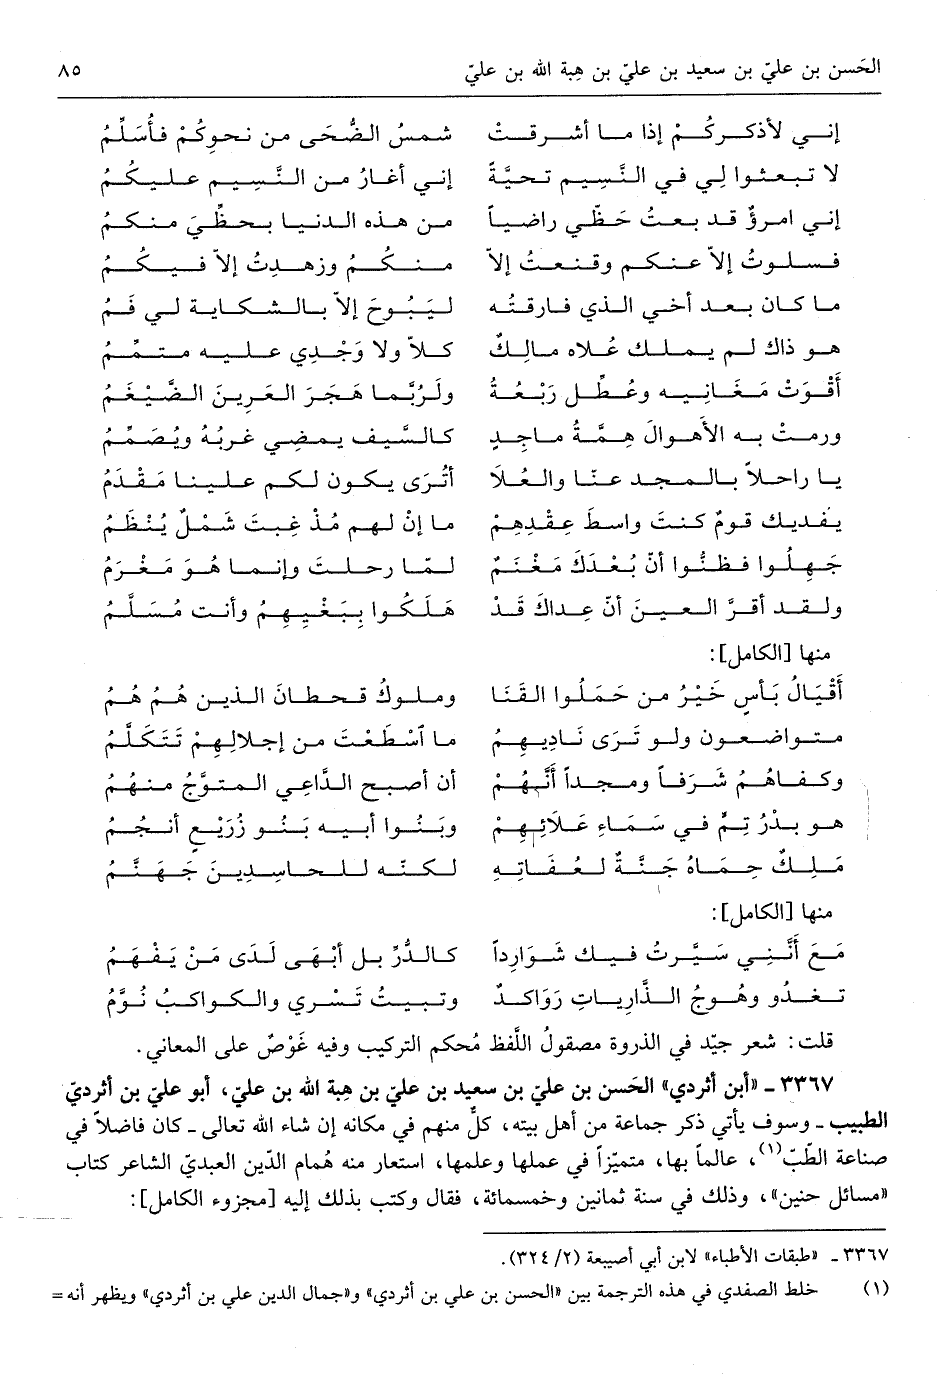 الحَسن بن عليّ بن سعيد بن عليّ بن هِبة الله بن عليّ ٨٥
إني لأذكركُمْ إذا ما أشرقتْ شمسُ الضُّحَى من نحوِكُمْ فأُسَلِّمُ
لا تبعثوا لي في النَّسيمِ تحيَّةً إني أغارُ من النَّسيمِ عليكُمُ
إني امرؤٌ قد بعتُ حَظِّي راضياً من هذه الدنيا بحظِّيَ منكمُ
فسلوتُ إلاَّ عنكم وقنعتُ إلاَّ منكُمُ وزهدتُ إلاَّ فيكُمُ
ما كان بعد أخي الذي فارقتُه ليَبُوحَ إلاَّ بالشكايةِ لي فَمُ
هو ذاك لم يملك عُلاه مالكٌ كلاَّ ولا وَجْدِي عليه متمِّمُ
أَقْوَتْ مَغَانِيهِ وعُطِّل رَبْعُهُ ولَرُبَّما هَجَرَ العَرِينَ الضَّيْغَمُ
ورمتْ به الأهوالَ همّةُ ماجدٍ كالسَّيفِ يمضي غربُهُ ويُصَمِّمُ
يا راحلاً بالمجد عنّا والعُلاَ أتُرَى يكون لكم علينا مَقْدَمُ
يفديك قومٌ كنتَ واسطَ عِقدِهم ما إن لهم مُذْ غِبتَ شَمْلٌ يُنْظَمُ
جَهِلُوا فظنُّوا أنّ بُعْدَكَ مَغْنَمٌ لمّا رحلتَ وإنما هُوَ مَغْرَمُ
ولقد أقرَّ العينَ أنّ عِداكَ قَدْ هَلَكُوا ببَغْيِهِمُ وأنت مُسَلَّمُ
منها [الكامل]:
أَقْيَالُ بَأْسٍ خَيْرُ من حَمَلُوا القَنَا وملوكُ قحطانَ الذين هُمُ هُمُ
متواضعون ولو تَرَى نَادِيهِمُ ما اسْطَعْتَ من إجلالِهِمْ تَتَكَلَّمُ
وكفاهُمُ شَرَفاً ومجداً أنَّهُمْ أن أصبح الدَّاعي المتوَّجُ منهُمُ
هو بدْرُ تِمٍّ في سَمَاءِ عَلائِهِمْ وبَنُوا أبيه بَنُو زُرَيْعٍ أنجُمُ
مَلِكٌ حِمَاهُ جَنَّةٌ لعُفَاتِهِ لكنّه للحاسِدِينَ جَهَنَّمُ
منها [الكامل]:
مَعَ أنَّنِي سَيَّرتُ فيك شَوَارِداً كالدُّرِّ بل أَبْهَى لَدَى مَنْ يَفْهَمُ
تغْدُو وهُوجُ الذَّارياتِ رَوَاكدٌ وتبيتُ تَسْرِي والكواكبُ نُوَّمُ
قلت: شعر جيّد في الذروة مصقولُ اللَّفظ مُحكم التركيب وفيه غَوْصٌ على المعاني.
٣٣٦٧ ـ «ابن أثردي» الحَسن بن عليّ بن سعيد بن عليّ بن هبة الله بن عليّ، أبو عليّ بن أثرديّ
الطبيب ـ وسوف يأتي ذكر جماعة من أهل بيته، كلٌّ منهم في مكانه إن شاء الله تعالى ـ كان فاضلاً في
صناعة الطّبّ(١)، عالماً بها، متميّزاً في عملها وعلمها، استعار منه هُمام الدّين العبديّ الشاعر كتاب
«مسائل حنين»، وذلك في سنة ثمانين وخمسمائة، فقال وكتب بذلك إليه [مجزوء الكامل]:
٣٣٦٧ ـ «طبقات الأطباء» لابن أبي أصيبعة (٢/ ٣٢٤).
(١) خلط الصفدي في هذه الترجمة بين «الحسن بن علي بن أثردي» و«جمال الدين علي بن أثردي» ويظهر أنه =